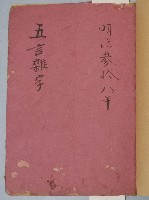 明治参拾八年
五言雜字